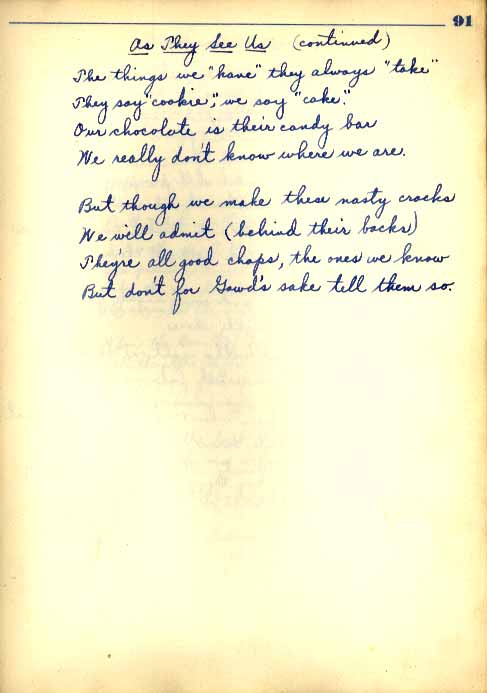 91
As They See Us (continued)
The things we "have" they always "take"
They say "cookie", we say "cake".
Our chocolate is their candy bar
We really don't know where we are.
But though we make these nasty cracks
We will admit (behind their backs)
They're all good chaps, the ones we know
But don't for Gawd's sake tell them so.